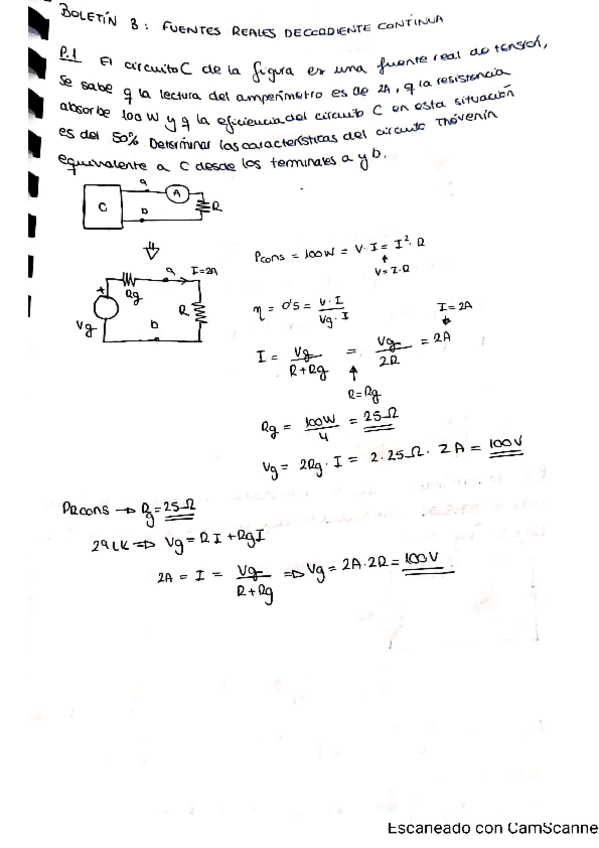 BOLETÍN 3: FUENTES REALES DE CORRIENTE CONTINUA
P.1 El circuito C de la figura es una fuente real de tensión,
Se sabe q la lectura del amperímetro es de 2A, q la resistencia
absorbe 100W y q la eficiencia del circuito C en esta situación
es del 50% Determinar las características del circuito Thévenin
equivalente a C desde los terminales a y b.
a
A
C
b
R
a I=2A
Rg
R
Vg
b
Pcons = 100W = V·I = I²·R
V=I·R
η = 0'5 = V·I / Vg·I
I=2A
I = Vg / R+Rg = Vg / 2R = 2A
R=Rg
Rg = 100W / 4 = 25Ω
Vg = 2Rg·I = 2·25Ω·2A = 100V
PRcons → Rg=25Ω
2ªLK ⇒ Vg = RI + RgI
2A = I = Vg / R+Rg ⇒ Vg = 2A·2R = 100V
Escaneado con CamScanne